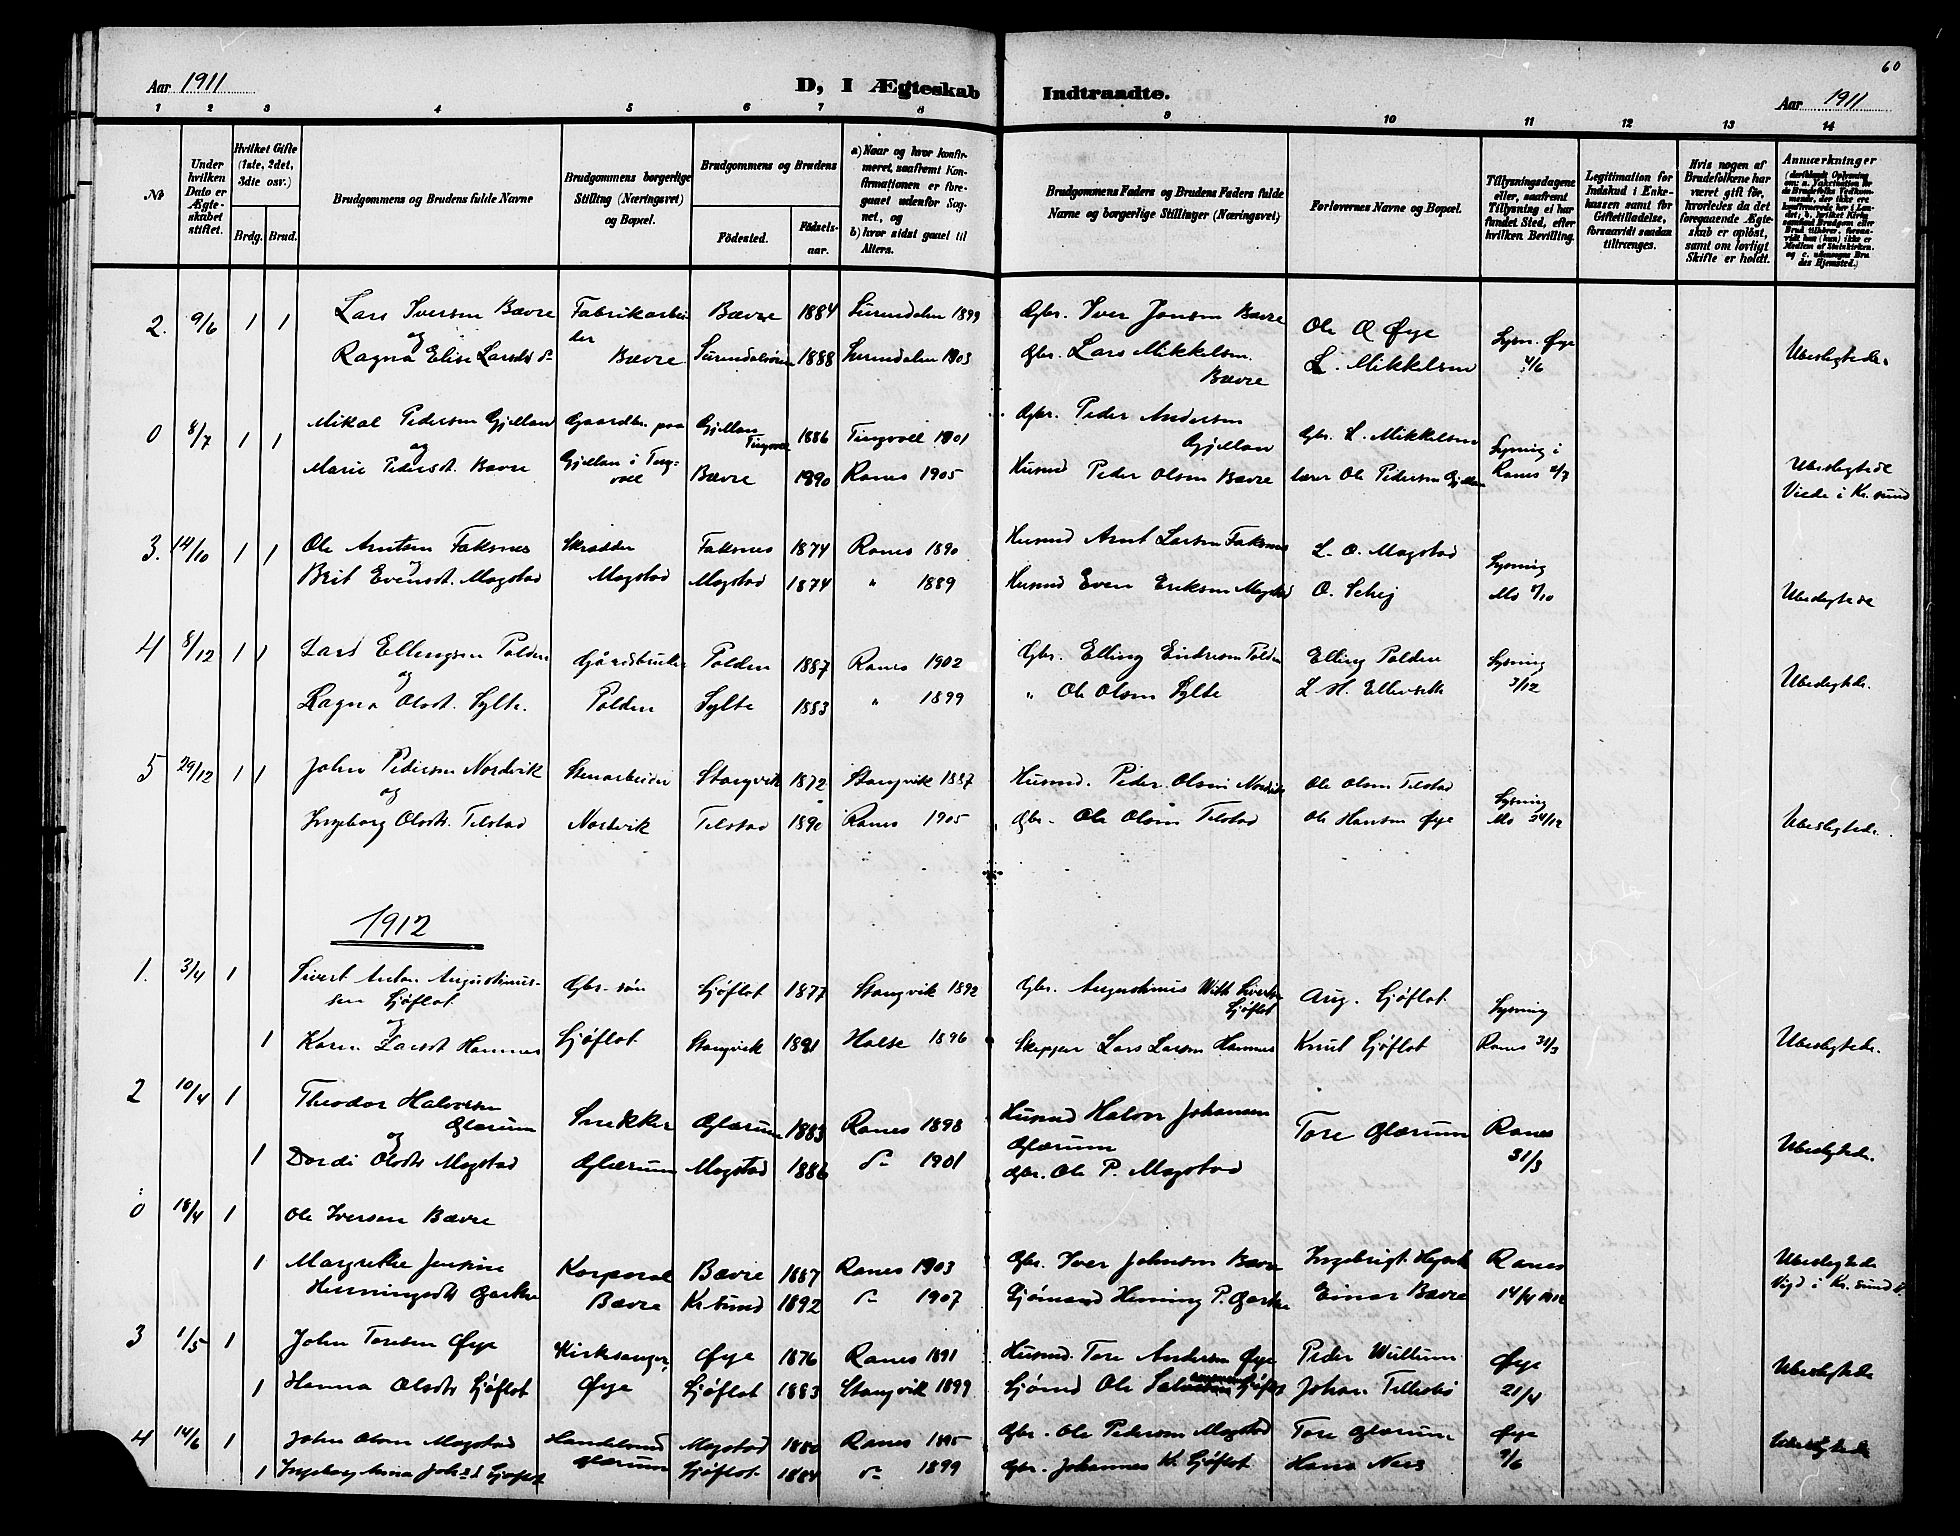 60
Aar 1911
D, I Ægteskab Indtraadte.
Aar 1911
1 2 3 4 5 6 7 8 9 10 11 12 13 14
No
Under hvilken Dato er Ægteskabet stiftet.
Hvilket Gifte (1ste, 2det, 3die osv.)
Brdg. Brud.
Brudgommens og Brudens fulde Navne
Brudgommens borgerlige Stilling (Næringsvei) og Bopæl.
Brudgommens og Brudens
Fødested.
Fødselsaar.
a) Naar og hvor konfirmeret, saafremt Konfirmationen er foregaaet udenfor Sognet, og
b) hvor sidst gaaet til Alters.
Brudgommens Faders og Brudens Faders fulde Navne og borgerlige Stillinger (Næringsvei)
Forlovernes Navne og Bopæl.
Tillysningsdagene eller, saafremt Tillysning ei har fundet Sted, efter hvilken Bevilling.
Legitimation for Indskud i Enkekassen samt for Giftetilladelse, forsaavidt saadan tiltrænges.
Hvis nogen af Brudefolkene har været gift før, hvorledes da det foregaaende Ægteskab er opløst, samt om lovligt Skifte er holdt.
Anmærkninger
2. 9/6 1 1 Lars Iversen Bævre Fabrikarbei Bævre 1884 Surendalen 1899 Gbr. Iver Jonsen Bævre Ole O Øye Lysn. Øye
og der
Ragna Elise Larsds Bævre 1888 Surendalen 1903 Gbr. Lars Mikkelsen L. Mikkelsen 4/6 Ubeslegtede
Bævre
0 8/7 1 1 Mikal Pedersen Gjellan Gaardbr. paa Gjellan Tingvoll 1886 Tingvoll 1901 Gbr. Peder Andersen Gjellan Gbr. L. Mikkelsen Lysning i
og Gjellan i Tingvoll
Marie Pedersdt. Bævre Bævre 1890 Ranes 1905 Husmd Peder Olsen Bævre lærer Ole Pedersen Gjellan Ranes 2/7 Ubeslegtede
Viede i Kr.sund
3. 14/10 1 1 Ole Arntsen Faksnes Skrædder Faksnes 1874 Ranes 1890 Husmd Arnt Larsen Faksnes L. O. Mogstad Lysning
og
Brit Evensdt. Mogstad Mogstad Mogstad 1874 " 1889 Husmd Even Eriksen Mogstad O. Schei Mo 8/10 Ubeslegtede
4 8/12 1 1 Lars Ellingsen Polden Gårdbruker Polden 1887 Ranes 1902 Gbr. Elling Endresen Polden Elling Polden Lysning
og
Ragna Olsdt. Sylte. Polden Sylte 1883 " 1899 " Ole Olsen Sylte L. H. Ellevsek 3/12 Ubeslegtede.
5 29/12 1 1 John Pedersen Nordvik Stenarbeider Stangvik 1872 Stangvik 1887 Husmd. Peder Olsen Nordvik Ole Olsen Telstad Lysning
og
Ingeborg Olsdtr. Telstad Nordvik Telstad 1890 Ranes 1905 Gbr. Ole Olsen Telstad Ole Hansen Øye Mo 24/12 Ubeslegtede.
1912
1. 3/4 1 Sivert Anton Augustinus- Gbr.søn Sjøflot 1877 Stangvik 1892 Gbr. Augustinus With Sivertsen Sjøflot Aug. Sjøflot Lysning
sen Sjøflot
og
1 Karen Larsdt Hamnes Sjøflot Stangvik 1881 Halse 1896 Skipper Lars Larsen Hamnes Knut Sjøflot Ranes 31/3 Ubeslegtede.
2 10/4 1 Theodor Halvorsen Glærum Snekker Glærum 1883 Ranes 1898 Husmd Halvor Johansen Glærum Tore Glærum Ranes
og
1 Dordi Olsdtr Mogstad Glærum Mogstad 1886 do 1901 Gbr. Ole P. Mogstad 31/3 Ubeslegtede.
0 18/4 1 Ole Iversen Bævre
1 Margrethe Jensine Korporal Bævre 1887 Ranes 1903 Gbr. Iver Johnsen Bævre Ingebrigt Ranes Ubeslegtede
Henningsdtr Garke Bævre Kr.sund 1892 do 1907 Sjømand Henning P. Garke Einar Bævre 14/4 1912 Vigd i Kr.sund
3 1/5 1 John Toresen Øye Kirksanger, Øye 1876 Ranes 1891 Husmd. Tore Andersen Øye Peder Wullum Øye Ubeslegtede
1 Hanna Olsdtr Sjøflot Øye Sjøflot 1883 Stangvik 1899 Sjømd Ole Sjøflot Johan Tellesbø 21/4
4 14/6 1 John Olsen Mogstad Handelsmd Mogstad 1880 Ranes 1895 Gbr. Ole Pedersen Mogstad Tore Glærum Øye Ubeslegtede
1 Ingeborg Anna Sjøflot Glærum Sjøflot 1884 do 1899 Gbr. Johannes K. Sjøflot Hans Ners 9/6